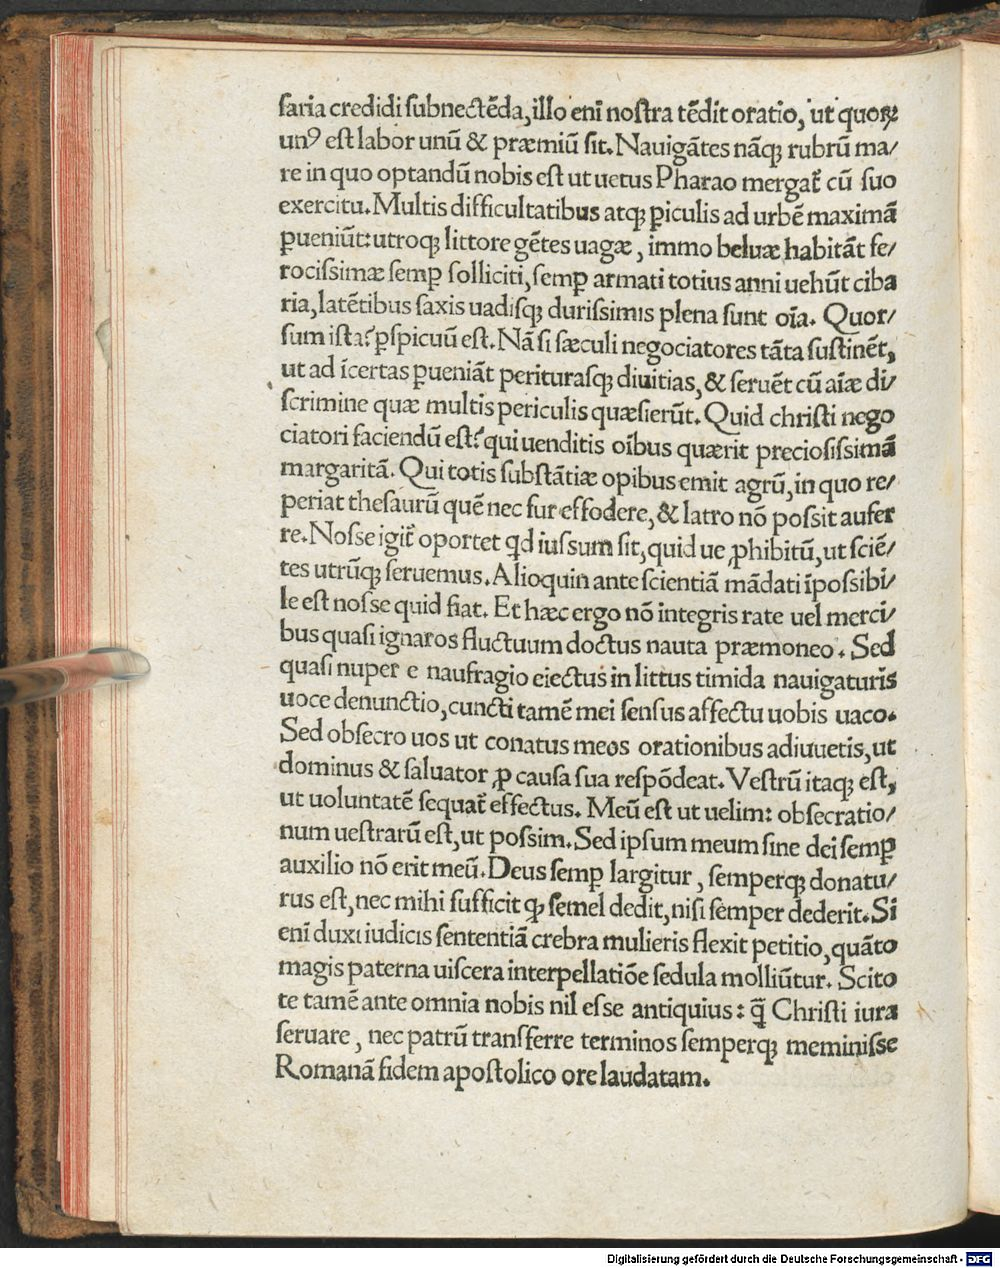 ſaria credidi ſubnectēda, illo enī noſtra tēdit oratio, ut quoꝝ
unꝰ eſt labor unū & præmiū ſit. Nauigātes nāqꝫ rubrū ma/
re in quo optandū nobis eſt ut uetus Pharao mergat᷑ cū ſuo
exercitu. Multis difficultatibus atqꝫ ꝑiculis ad urbē maximā
ꝑueniūt: utroqꝫ littore gētes uagæ, immo beluæ habitāt fe/
rociſſimæ ſemꝑ ſolliciti, ſemꝑ armati totius anni uehūt ciba
ria, latētibus ſaxis uadiſqꝫ duriſſimis plena ſunt oīa. Quor/
ſum iſta? ꝑſpicuū eſt. Nā ſi ſæculi negociatores tāta ſuſtinēt,
ut ad īcertas ꝑueniāt perituraſqꝫ diuitias, & ſeruēt cū aīæ di/
ſcrimine quæ multis periculis quæſierūt. Quid chriſti nego
ciatori faciendū eſt? qui uenditis oībus quærit precioſiſſimā
margaritā. Qui totis ſubſtātiæ opibus emit agrū, in quo re/
periat theſaurū quē nec fur effodere, & latro nō poſſit aufer
re. Noſſe igit᷑ oportet qd iuſſum ſit, quid ue ꝓhibitū, ut ſciē/
tes utrūqꝫ ſeruemus. Alioquin ante ſcientiā mādati īpoſſibi/
le eſt noſſe quid fiat. Et hæc ergo nō integris rate uel merci/
bus quaſi ignaros fluctuum doctus nauta præmoneo. Sed
quaſi nuper e naufragio eiectus in littus timida nauigaturis
uoce denunctio, cuncti tamē mei ſenſus affectu uobis uaco.
Sed obſecro uos ut conatus meos orationibus adiuuetis, ut
dominus & ſaluator ꝓ cauſa ſua reſpōdeat. Veſtrū itaqꝫ eſt,
ut uoluntatē ſequat᷑ effectus. Meū eſt ut uelim: obſecratio/
num ueſtrarū eſt, ut poſſim. Sed ipſum meum ſine dei ſemꝑ
auxilio nō erit meū. Deus ſemꝑ largitur, ſemperqꝫ donatu/
rus eſt, nec mihi ſufficit qꝫ ſemel dedit, niſi ſemper dederit. Si
enī duxi iudicis ſententiā crebra mulieris flexit petitio, quāto
magis paterna uiſcera interpellatiōe ſedula molliūtur. Scito
te tamē ante omnia nobis nil eſſe antiquius: q̄ꝫ Chriſti iura
ſeruare, nec patrū tranſferre terminos ſemperqꝫ meminiſſe
Romanā fidem apoſtolico ore laudatam.
Digitalisierung gefördert durch die Deutsche Forschungsgemeinschaft - DFG